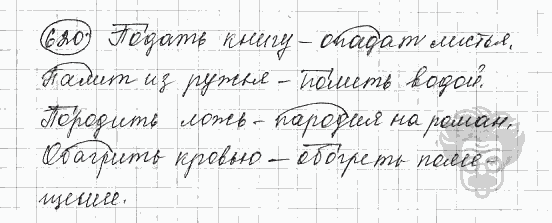 620) Подать книгу – опадат листья.
Палит из ружья – полить водой.
Породить ложь – пародия на роман.
Обагрить кровью – обогреть поме-
щение.